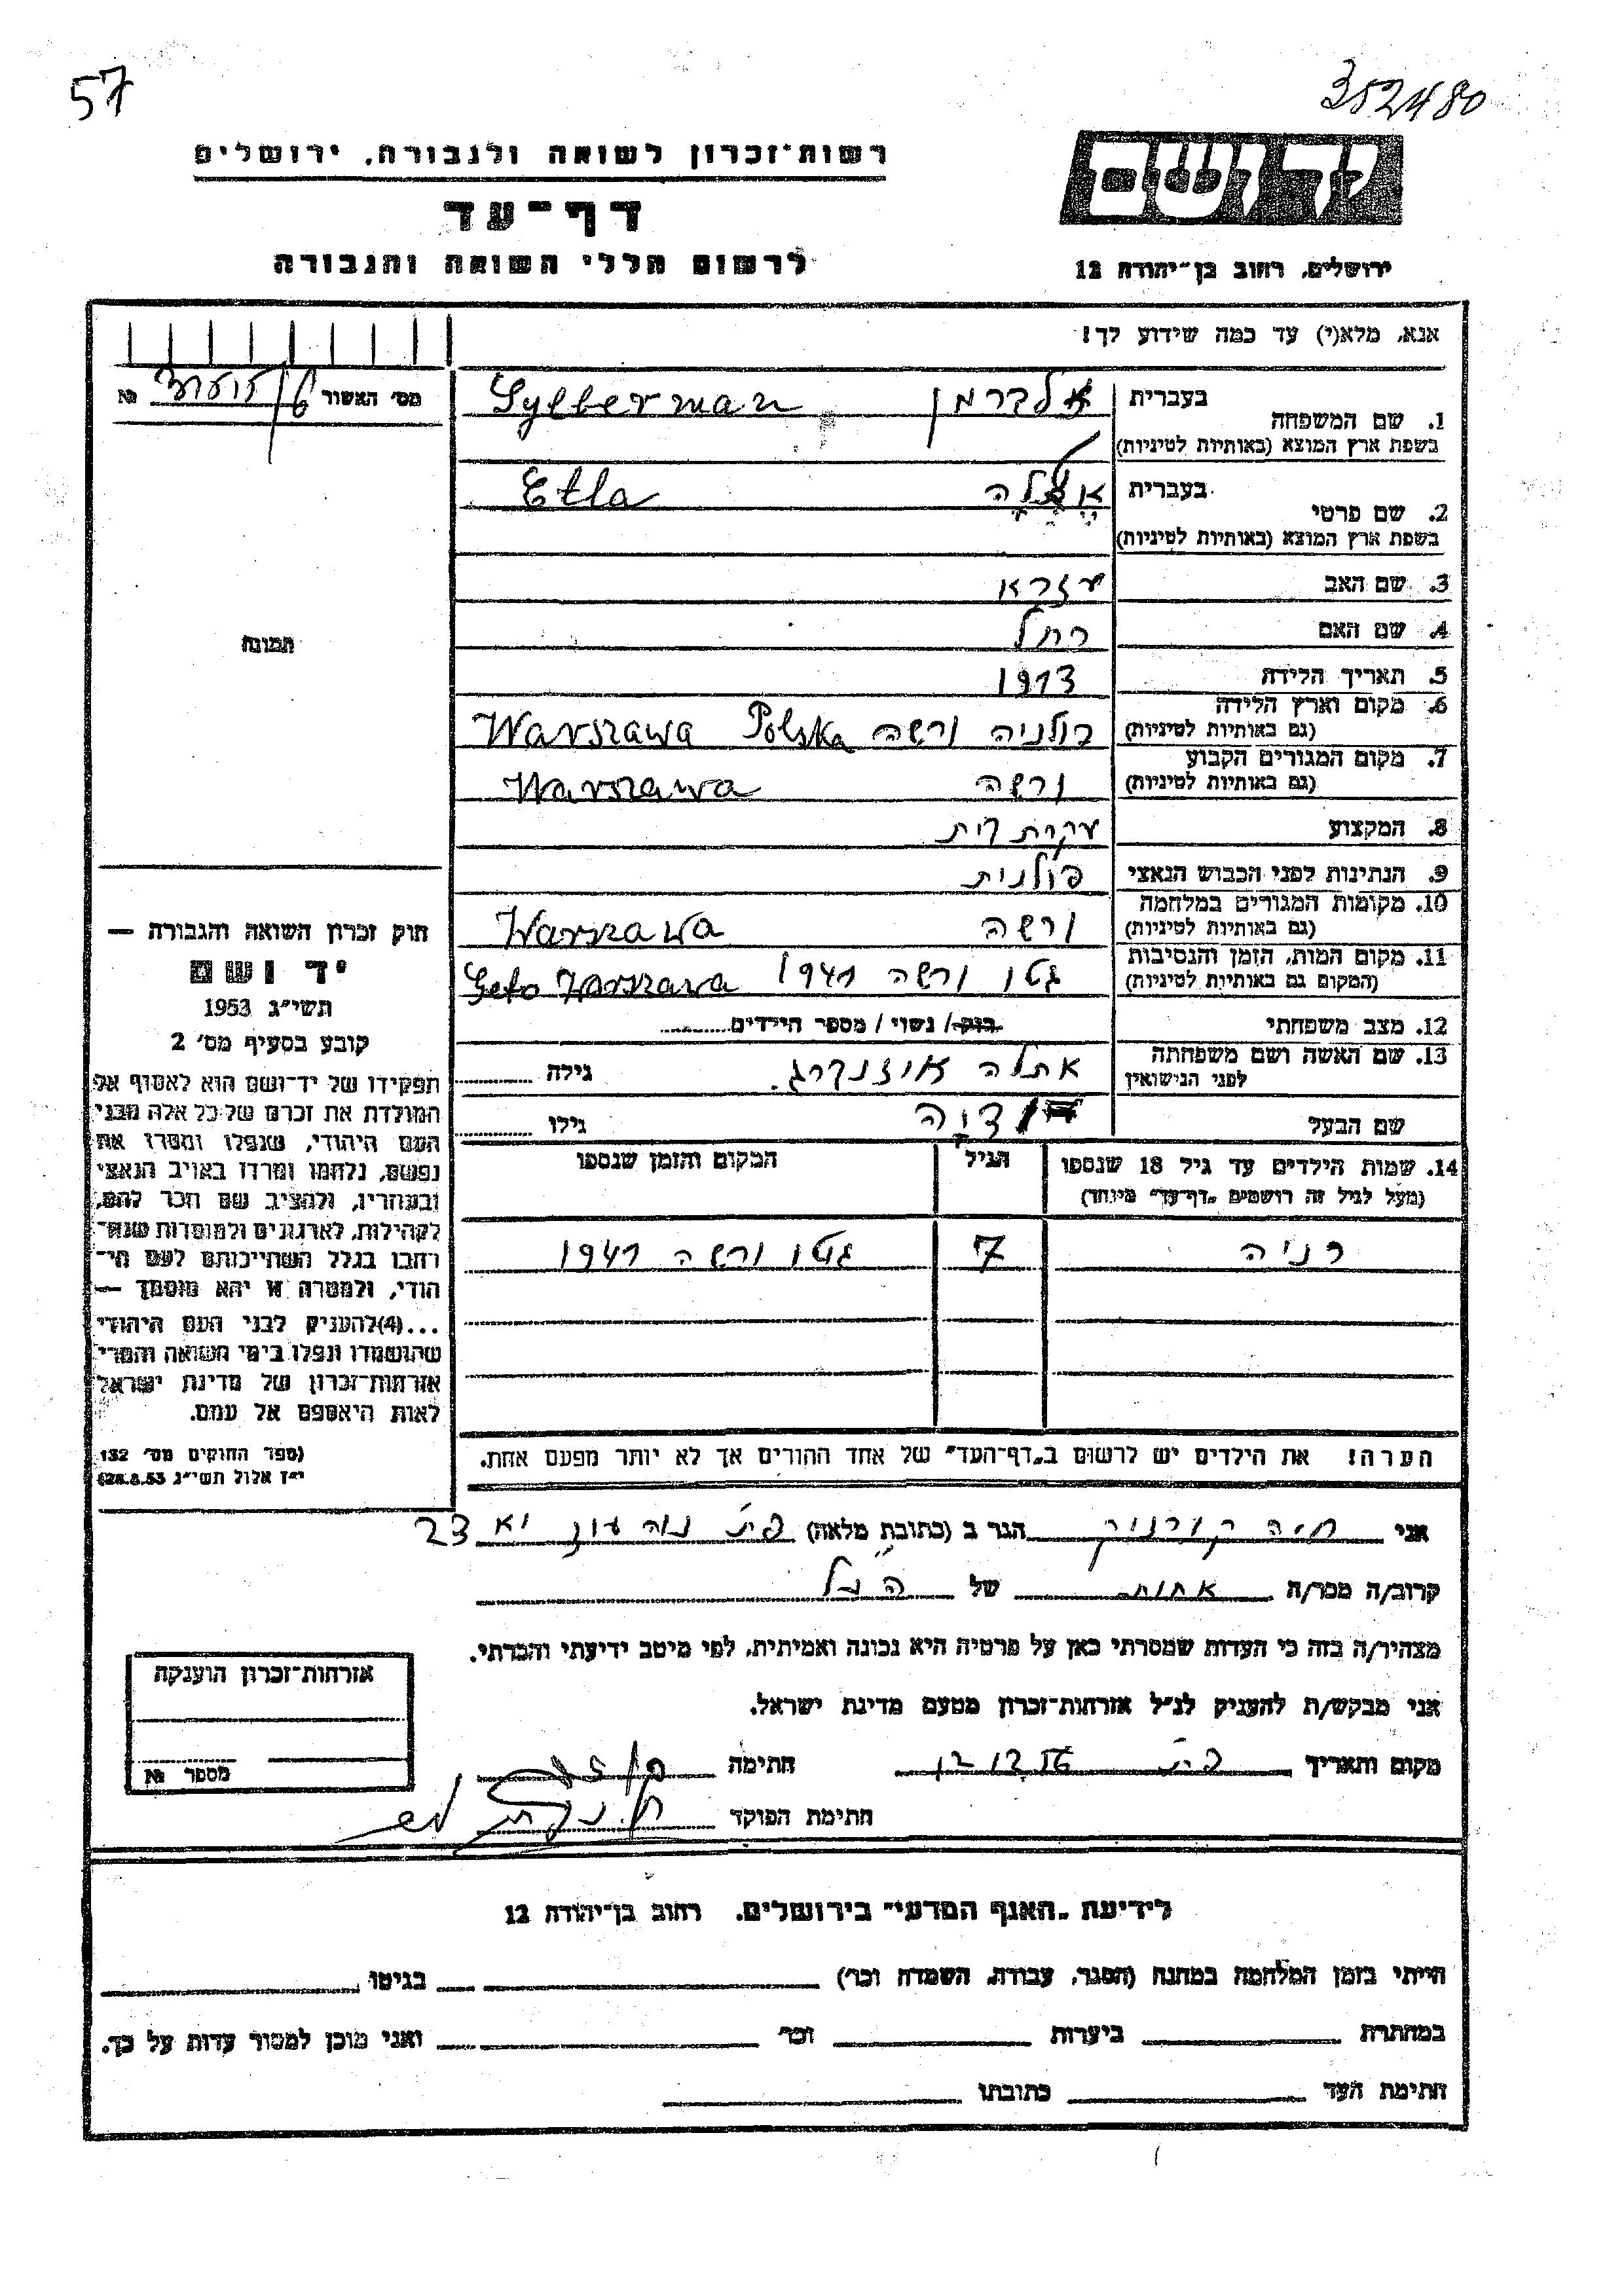 57
352480
רשות־זכרון לשואה ולגבורה, ירושלים
דף־עד
לרשום חללי השואה והגבורה
יד ושם
ירושלים, רחוב בן־יהודה 12
אנא, מלא(י) עד כמה שידוע לך!
מס׳ האשור №
1. שם המשפחה
בעברית
בשפת ארץ המוצא (באותיות לטיניות)
Sylberman
2. שם פרטי
בעברית
בשפת ארץ המוצא (באותיות לטיניות)
Etla
3. שם האב עזרא
4. שם האם רחל
5. תאריך הלידה 1913
6. מקום וארץ הלידה
(גם באותיות לטיניות)
פולניה ורשה Warszawa Polska
7. מקום המגורים הקבוע
(גם באותיות לטיניות)
ורשה Warszawa
8. המקצוע עקרת בית
9. הנתינות לפני הכבוש הנאצי פולנית
10. מקומות המגורים במלחמה
(גם באותיות לטיניות)
ורשה Warszawa
11. מקום המות, הזמן והנסיבות
(המקום גם באותיות לטיניות)
גטו ורשה 1941 Geto Warszawa
12. מצב משפחתי רווק / נשוי / מספר הילדים
13. שם האשה ושם משפחתה
לפני הנישואין
אתלה גילה
שם הבעל גילו
14. שמות הילדים עד גיל 18 שנספו
(מעל לגיל זה רושמים „דף־עד״ מיוחד)
הגיל
המקום והזמן שנספו
רניה 7 גטו ורשה 1941
הערה! את הילדים יש לרשום ב„דף־העד״ של אחד ההורים אך לא יותר מפעם אחת.
תמונה
חוק זכרון השואה והגבורה —
יד ושם
תשי״ג 1953
קובע בסעיף מס׳ 2
תפקידו של יד־ושם הוא לאסוף אל
המולדת את זכרם של כל אלה מבני
העם היהודי, שנפלו ומסרו את
נפשם, נלחמו ומרדו באויב הנאצי
ובעוזריו, ולהציב שם וזכר להם,
לקהילות, לארגונים ולמוסדות שנח־
רבו בגלל השתייכותם לעם הי־
הודי, ולמטרה זו יהא מוסמך —
...(4)להעניק לבני העם היהודי
שהושמדו ונפלו בימי השואה והמרי
אזרחות־זכרון של מדינת ישראל
לאות היאספם אל עמם.
(ספר החוקים מס׳ 132
י״ז אלול תשי״ג 28.8.53)
אני חיה הגר ב (כתובת מלאה) 23
קרוב/ה מכר/ה אחות של הנ״ל
מצהיר/ה בזה כי העדות שמסרתי כאן על פרטיה היא נכונה ואמיתית, לפי מיטב ידיעתי והכרתי.
אני מבקש/ת להעניק לנ״ל אזרחות־זכרון מטעם מדינת ישראל.
מקום ותאריך חתימה
חתימת הפוקד
אזרחות־זכרון הוענקה
מספר №
לידיעת „האגף המדעי״ בירושלים, רחוב בן־יהודה 12
הייתי בזמן המלחמה במחנה (הסגר, עבודה, השמדה וכו׳) בגיטו
במחתרת ביערות וכו׳ ואני מוכן למסור עדות על כך.
חתימת העד כתובתו